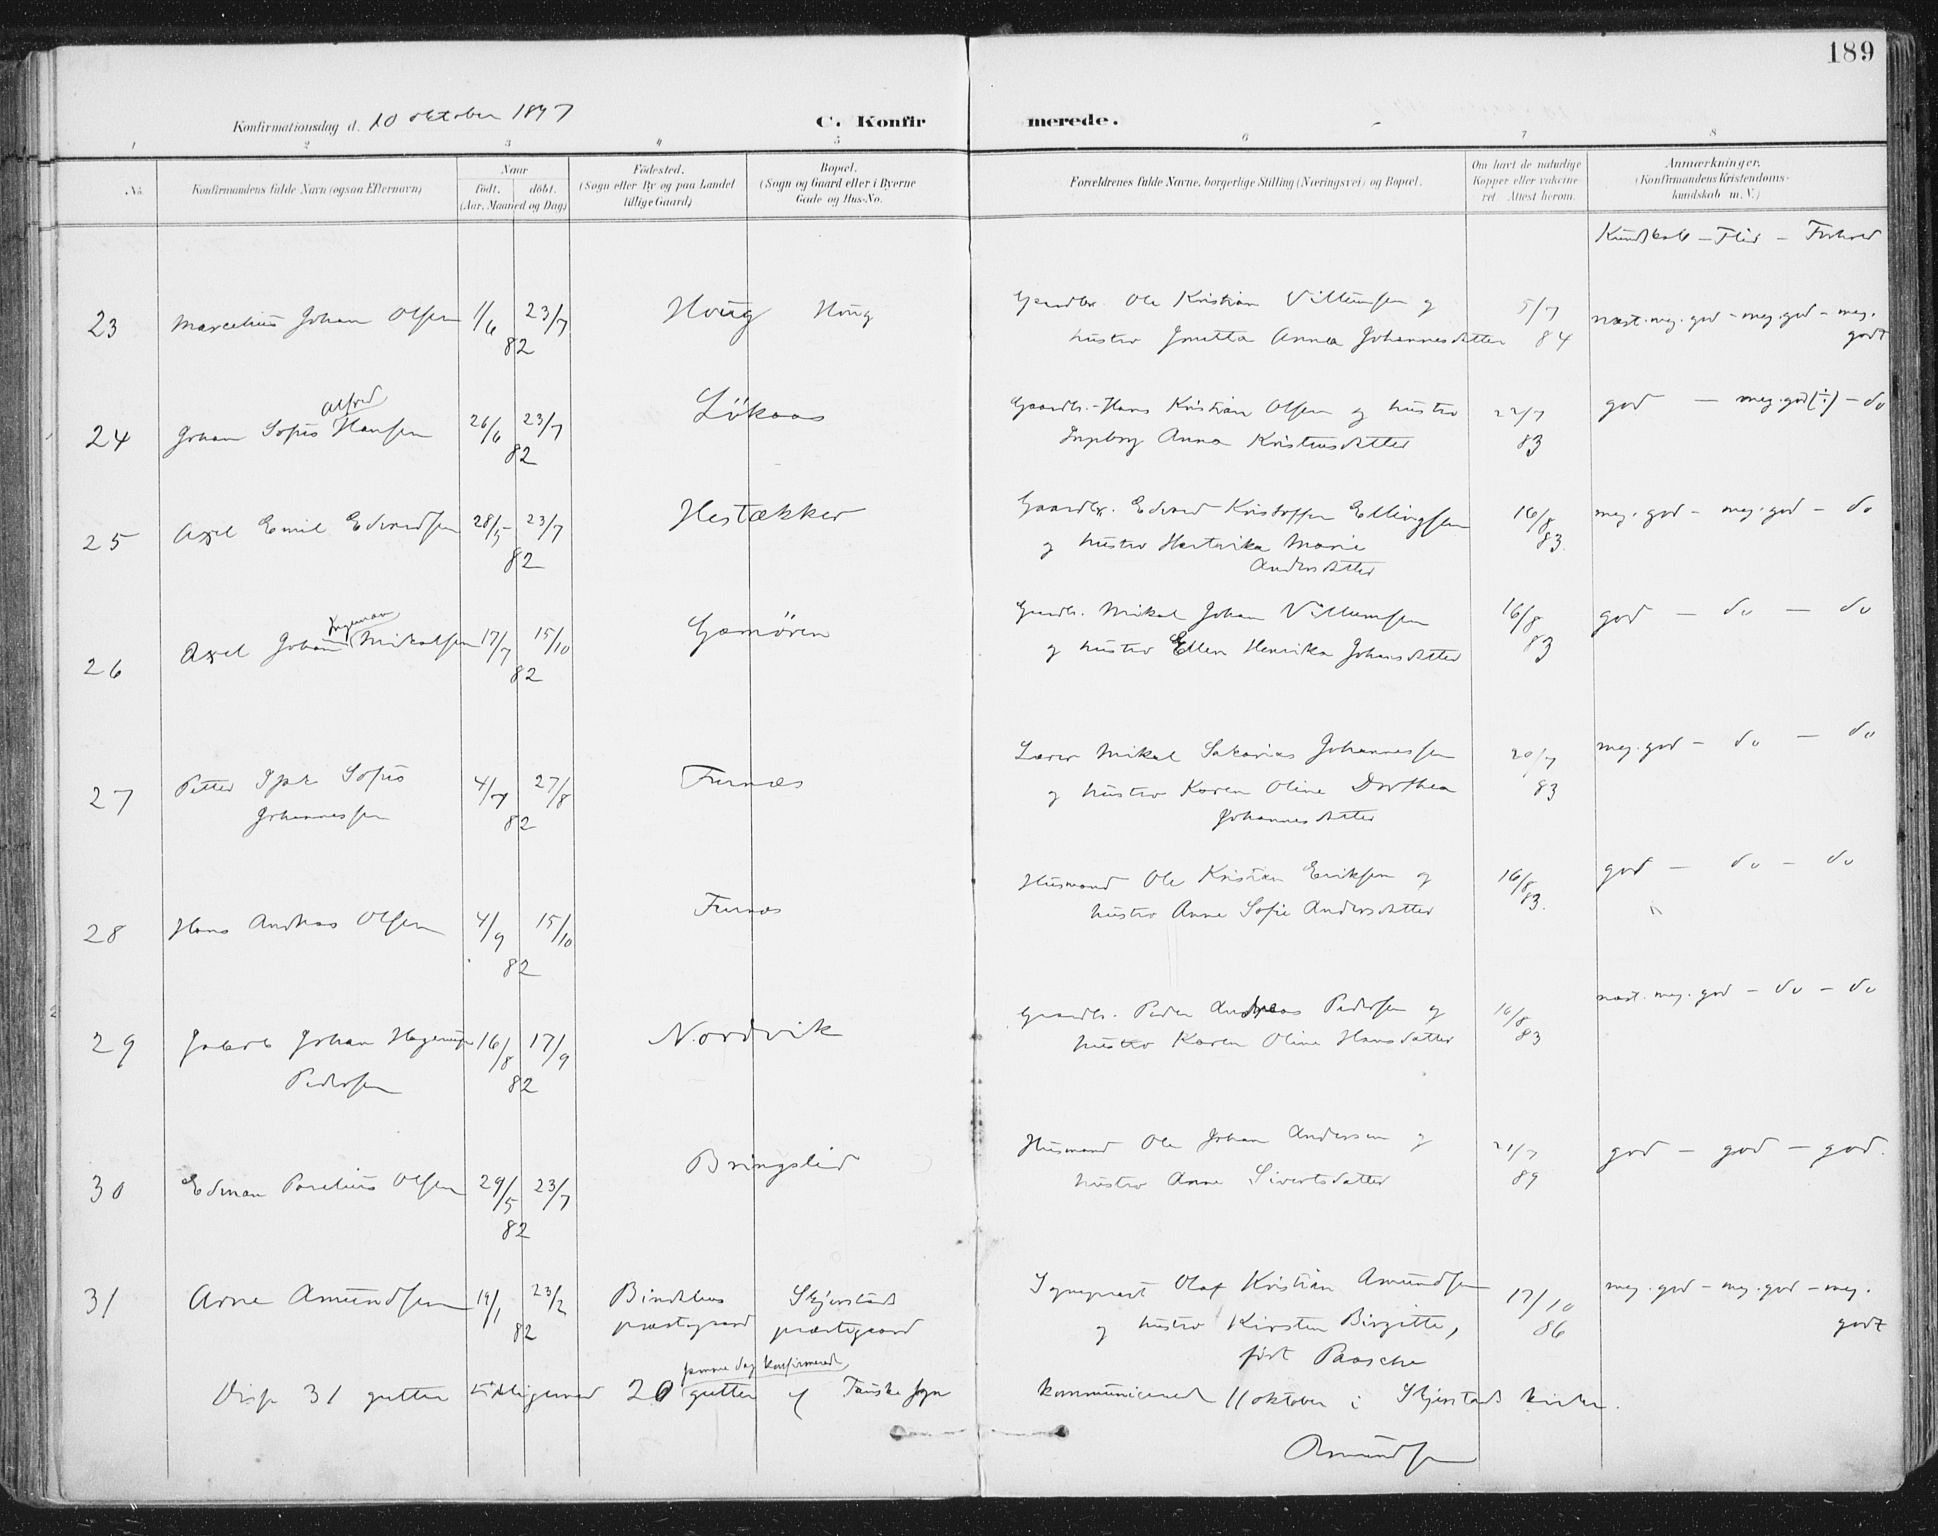 189
Konfirmationsdag d. 10 oktober 1897
C. Konfirmerede.
1 2 3 4 5 6 7 8
No.
Konfirmandens fulde Navn (ogsaa Efternavn)
Naar
født. døbt.
(Aar, Maaned og Dag)
Födested.
(Sogn eller By og paa Landet
tillige Gaard)
Bopæl.
(Sogn og Gaard eller i Byerne
Gade og Hus-No.
Forældrenes fulde Navne, borgerlige Stilling (Næringsvei) og Bopæl.
Om havt de naturlige
Kopper eller vakcine-
ret Attest herom.
Anmærkninger.
(Konfirmandens Kristendoms-
kundskab m. V.)
Kundskab – Flid – Forhold
23 Marcelius Johan Olsen 1/6 23/7 82 Houg Houg
Gaardbr. Ole Kristian Villumsen og
hustro Jonetta Anna Johannesdatter 5/7 84
næst. meg. god – meg. god – meg. godt
24 Johan Sofus Alfred Hansen 26/6 23/7 82 Løkaas
Gaardbr. Hans Kristian Olsen og hustro
Ingeborg Anna Kristensdatter 22/7 83
god – meg. god (÷) – do
25 Axel Emil Edvardsen 28/5 23/7 82 Hestækker
Gaardbr. Edvard Kristoffer Ellingsen
og hustro Hartvika Marie
Andersdatter 16/8 83.
meg. god – meg. god – do
26 Axel Johan Ingeman Mikalsen 17/7 15/10 82
Gaardbr. Mikal Johan Villumsen
og hustro Ellen Henrika Johansdatter 16/8 83
god – do – do
27 Petter Sofus
Johannessen 4/7 27/8 82 Furnæs
Lærer Mikal Sakarias Johannessen
og hustro Karen Oline Dorthea
Johannesdatter 20/7 83
meg. god – do – do
28 Hans Andreas Olsen 4/9 15/10 82 Furnæs
Husmand Ole Kristian Eriksen og
hustro Anne Sofie Andersdatter 16/8 83.
god – do – do
29 Jakob Johan Hagerup
Pedersen 16/8 17/9 82 Nordvik
Gaardbr. Peder Andreas Pedersen og
hustro Karen Oline Hansdatter 16/8 83
næst. meg. god – do – do
30 Edman Parelius Olsen 29/5 23/7 82 Bringslid
Husmand Ole Johan Andersen og
hustro Anne Sivertsdatter 21/7 89
god – god – god.
31 Arne Amundsen 19/1 23/2 82 Bindalens
præstegaard Skjerstads
præstegaard
Sogneprest Olaf Kristian Amundsen
og hustro Kirsten Birgitte,
født Paasche 17/10 86
meg. god – meg. god – meg. godt
31 gutter tilligemed 20 samme dag konfirmerede gutter af Fauske sogn
kommunicered 11 oktober i Skjerstads kirke.
Amundsen